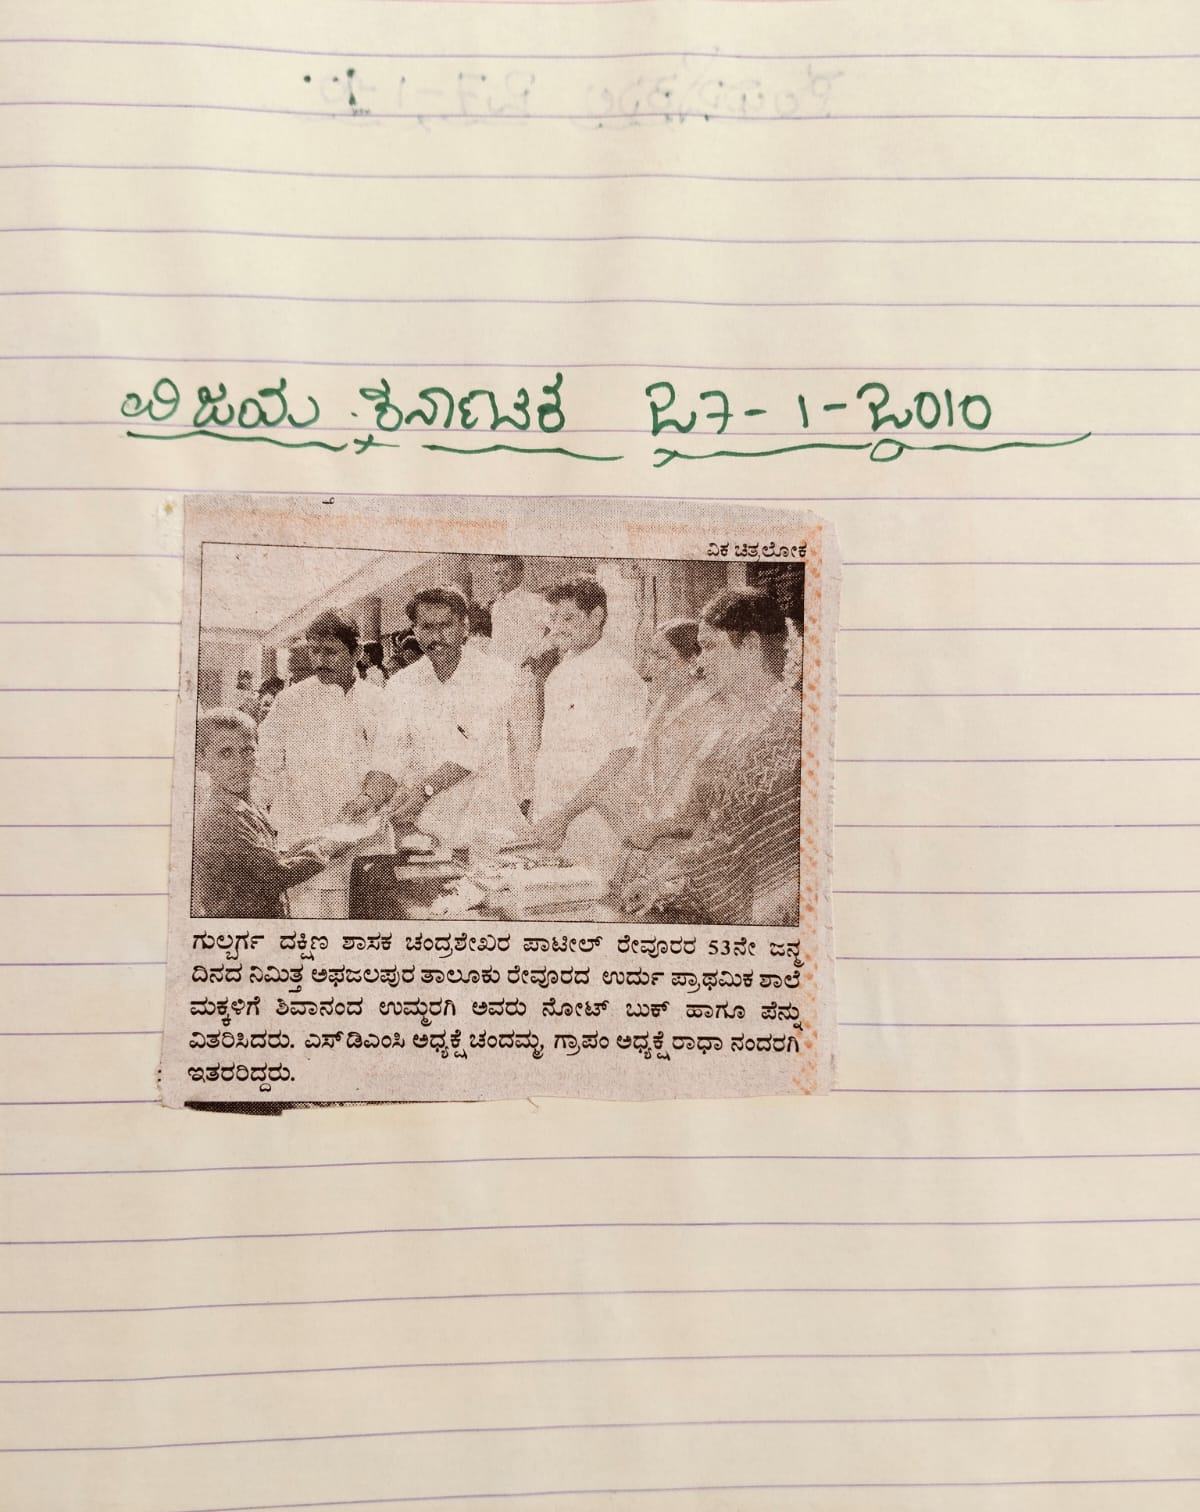 ವಿಜಯ ಕರ್ನಾಟಕ 27-1-2010
ವಿಕ ಚಿತ್ರಲೋಕ
ಗುಲ್ಬರ್ಗ ದಕ್ಷಿಣ ಶಾಸಕ ಚಂದ್ರಶೇಖರ ಪಾಟೀಲ್ ರೇವೂರರ 53ನೇ ಜನ್ಮ
ದಿನದ ನಿಮಿತ್ತ ಅಫಜಲಪುರ ತಾಲೂಕು ರೇವೂರದ ಉರ್ದು ಪ್ರಾಥಮಿಕ ಶಾಲೆ
ಮಕ್ಕಳಿಗೆ ಶಿವಾನಂದ ಉಮ್ಮರಗಿ ಅವರು ನೋಟ್ ಬುಕ್ ಹಾಗೂ ಪೆನ್ನು
ವಿತರಿಸಿದರು. ಎಸ್‌ಡಿಎಂಸಿ ಅಧ್ಯಕ್ಷೆ ಚಂದಮ್ಮ, ಗ್ರಾಪಂ ಅಧ್ಯಕ್ಷೆ ರಾಧಾ ನಂದರಗಿ
ಇತರರಿದ್ದರು.